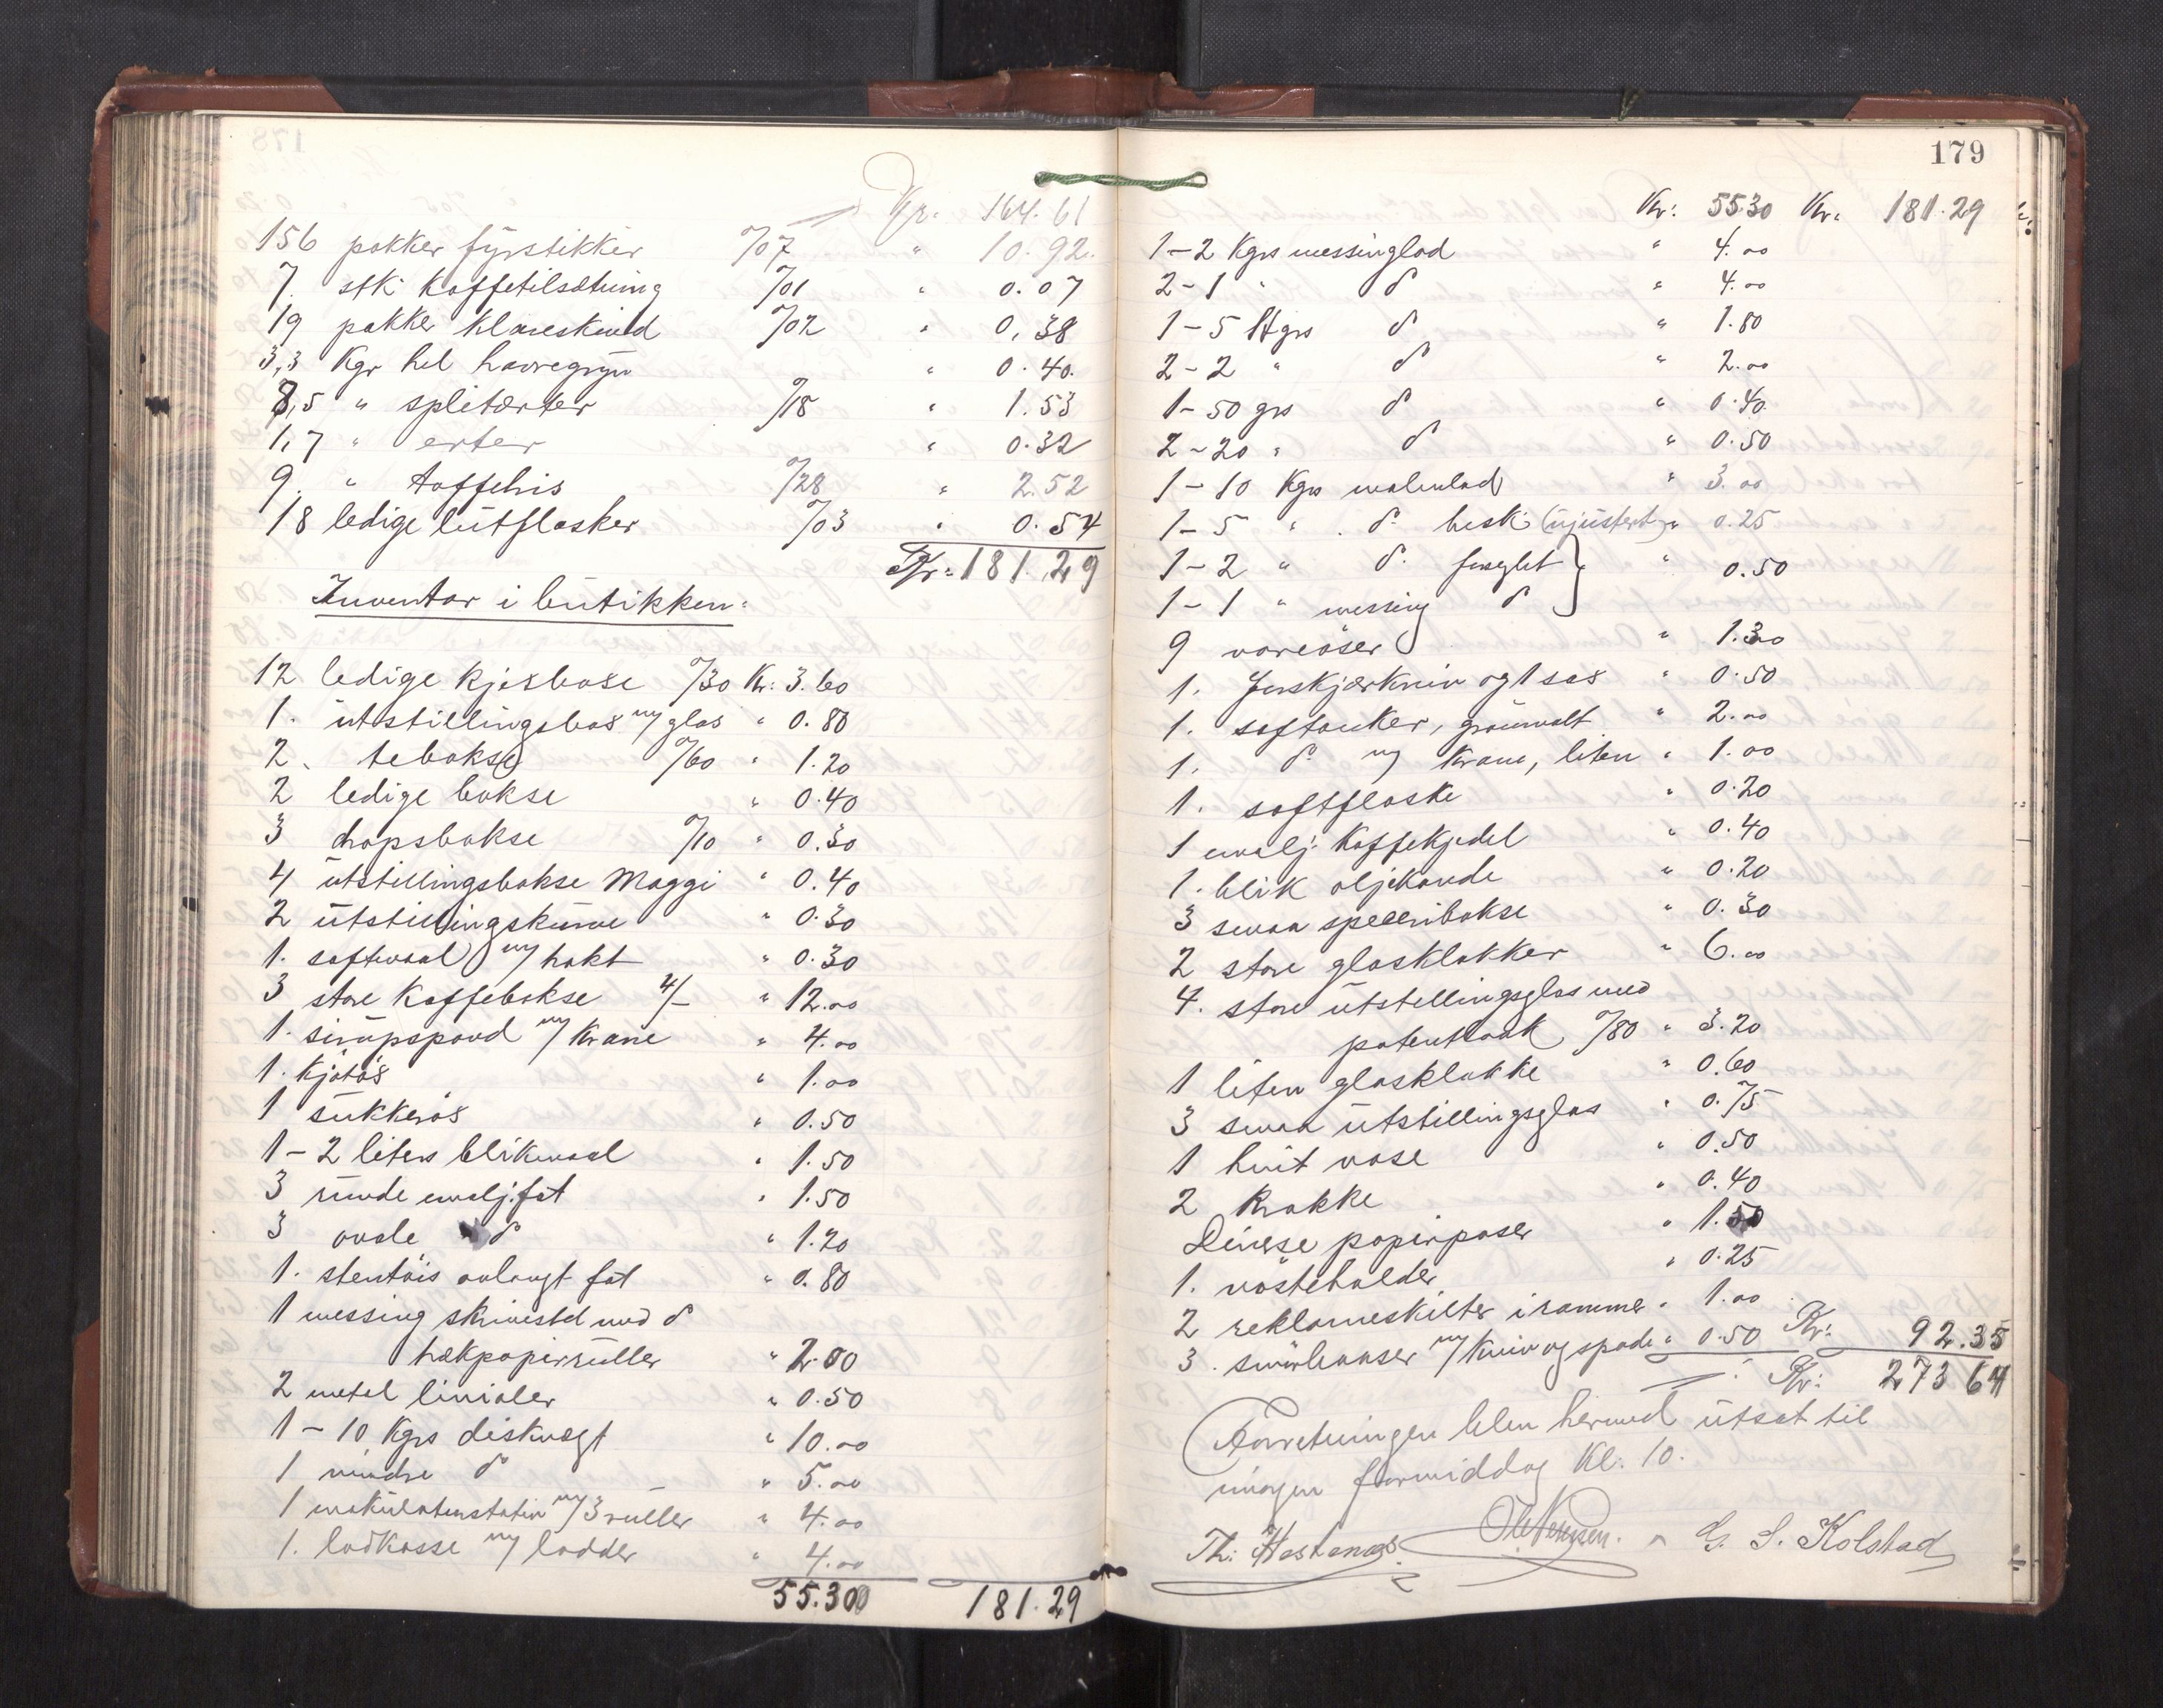 Kr. 164.61
156 pakker fyrstikker 0/07 " 10.92.
7. stk. kaffetilsætning 0/01 " 0.07
19 pakker klareskind 0/02 " 0,38
3,3 Kgr hel havregryn " 0.40.
8,5 " splitærter 0/18 " 1.53
1,7 " erter " 0.32
9. " toffelris 0/28 " 2.52
18 ledige lutflasker 0/03 " 0.54
Kr. 181.29
Inventar i butikken:
12 ledige kjexbose 0/30 Kr: 3.60
1. utstillingsbox m/ glas " 0.80
2. tebokse 0/60 " 1.20
2 ledige bokse " 0.40
3 dropsbokse 0/10 " 0.30
4 utstillingsbokse Maggi " 0.40
2 utstillingskurve " 0.30
1. saftmaal m/ trakt " 0.30
3 store Kaffebokse 4/- " 12.00
1. sirupspand m/ Krane " 4.00
1. kjøtøs " 1.00
1 sukkerøs " 0.50
1-2 liters blikmaal " 1.50
3 runde emalj. fat " 1.50
3 ovale do " 1.20
1. stentøis avlangt fat " 0.80
1 messing skrivestel med do
trækpapirruller " 2.00
2 metal linialer " 0.50
1-10 Kgrs diskvegt " 10.00
1 mindre do " 5.00
1 makulaturstativ m/ 3 ruller " 4.00
1. lodkasse m/ lodder " 4.00
55.30 181.29
179
Kr: 55.30 Kr: 181.29
1-2 Kgrs messinglod " 4.00
2-1 " do " 4.00
1-5 Hgrs do " 1.80
2-2 " do " 2.00
1-50 grs do " 0.40.
2-20 " do " 0.50
1-10 Kgrs malmlod " 3.00
1-5 " do besk. (ujustert) " 0.25
1-2 " do " 0.50
1-1 " messing do
9 vareøser " 1.30
1. Jernskjærkniv og 1 sax " 0.50
1. saftanker, grønmalt " 2.00
1. do m/ Krane, liten " 1.00
1. saftflaske " 0.20
1 emalj. Kaffekjedel " 0.40
1. blik oljekande " 0.20
3 smaa speceribokse " 0.30
2 store glasklokker " 6.00
4. store utstillingsglas med
patentlaak 0/80 " 3.20
1 liten glasklokke " 0.60
3 smaa utstillingsglas " 0.75
1 hvit vase " 0.50
2 Krakke " 0.40
Diverse papirposer " 1.50
1. vøsteholder " 0.25
2 reklameskilter i ramme " 1.00
3. m/ kniv og spade " 0.50 Kr: 92.35
Kr: 273 64
Forretningen blev hermed utsat til
imorgen formiddag Kl. 10.
Th: G. S. Kolstad